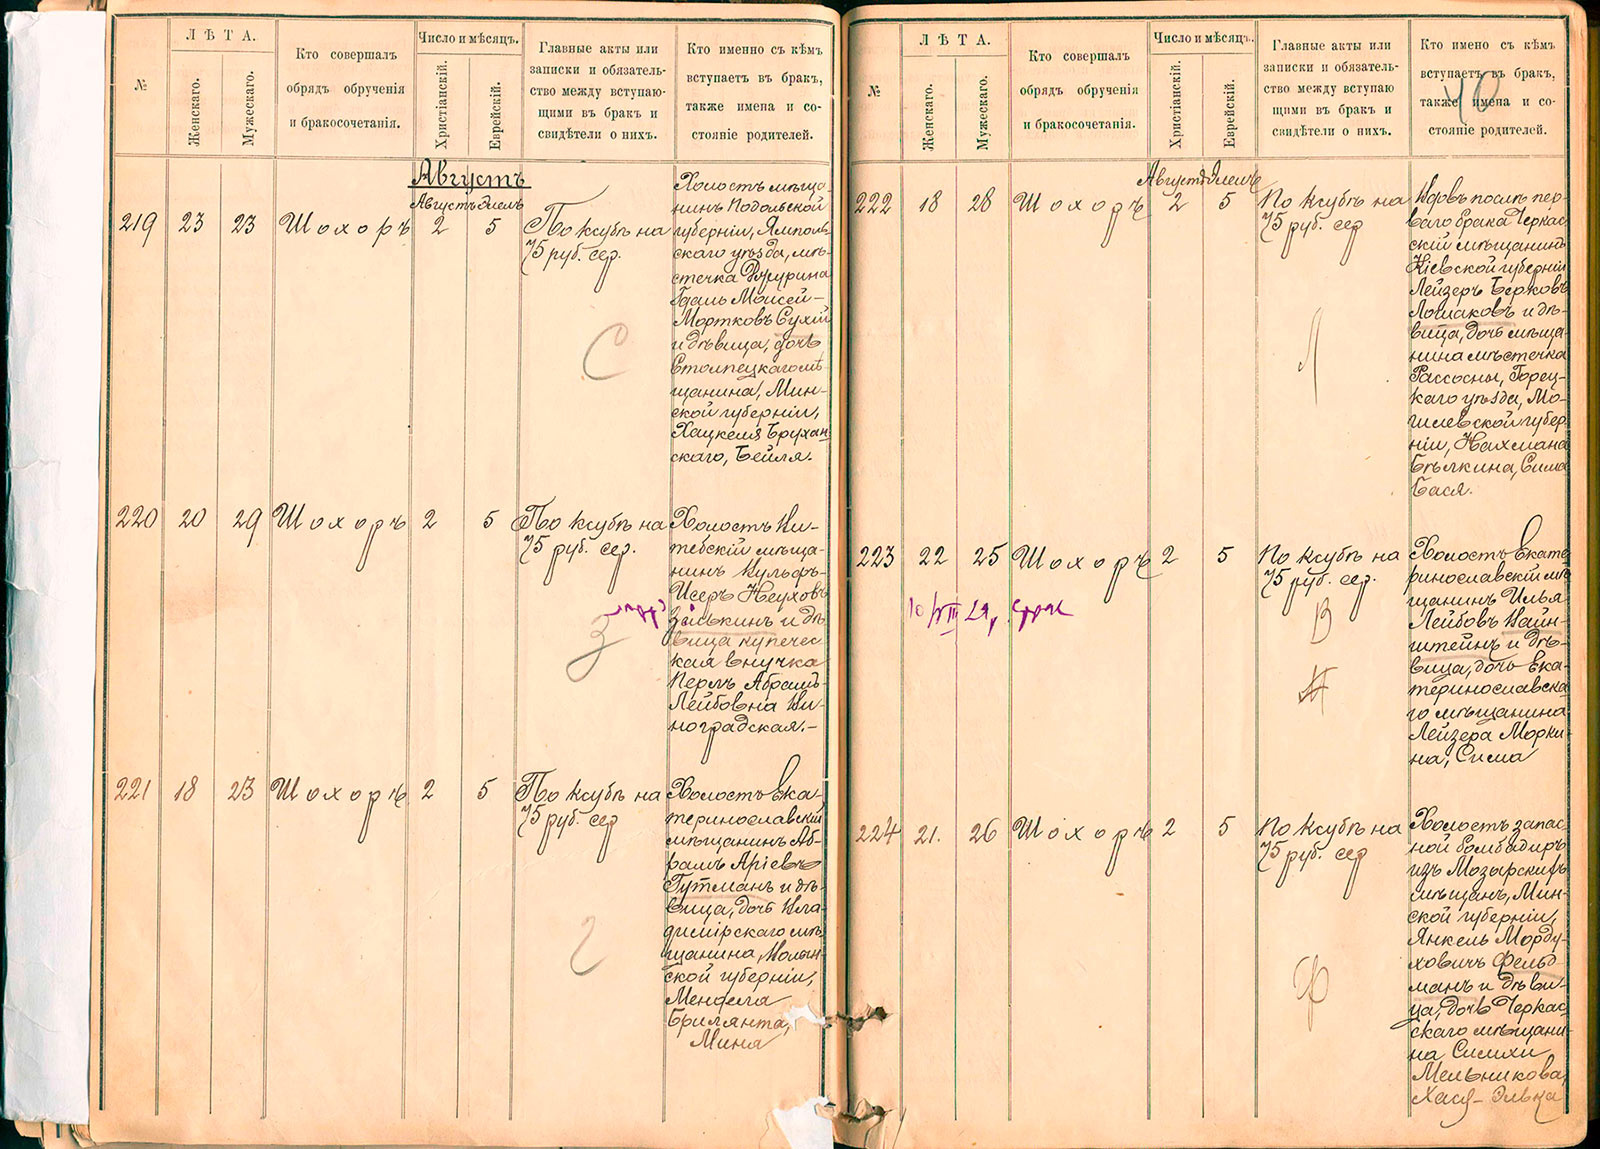 №
ЛѢТА.
Женскаго.
Мужескаго.
Кто совершалъ
обрядъ обрученія
и бракосочетанія.
Число и мѣсяцъ.
Христіанскій.
Еврейскій.
Главные акты или
записки и обязатель-
ство между вступаю-
щими въ бракъ и
свидѣтели о нихъ.
Кто именно съ кѣмъ
вступаетъ въ бракъ,
также имена и со-
стояніе родителей.
Августъ
Августъ Элелъ
219 23 23 Шохоръ 2 5
По ксубѣ на
75 руб. сер.
С
Холостъ мѣща-
нинъ Подольской
губерніи, Ямполь-
скаго уѣзда, мѣ-
стечка Джурина
Моисей-
Мортковъ Сухій
и дѣвица, дочь
Столпецкаго мѣ-
щанина, Мин-
ской губерніи,
Хацкеля Брухан-
скаго, Бейля.
220 20 29 Шохоръ 2 5
По ксубѣ на
75 руб. сер.
З
Холостъ Ви-
тебскій мѣща-
нинъ Вульфъ-
Исеръ Неуховъ
Зāлькинъ и дѣ-
вица купечес-
кая внучка
Перлъ Абрамъ-
Лейбовна Ви-
ноградская.-
221 18 23 Шохоръ 2 5
По ксубѣ на
75 руб. сер
Г
Холостъ Ека-
теринославскій
мѣщанинъ Аб-
рамъ Аріевъ
Гутманъ и дѣ-
вица, дочь Вла-
димірскаго мѣ-
щанина, Волын-
ской губерніи,
Менделя
Брилянта,
Миня
№
ЛѢТА.
Женскаго.
Мужескаго.
Кто совершалъ
обрядъ обрученія
и бракосочетанія.
Число и мѣсяцъ.
Христіанскій.
Еврейскій.
Главные акты или
записки и обязатель-
ство между вступаю
щими въ бракъ и
свидѣтели о нихъ.
Кто имено съ кѣмъ
вступаетъ въ бракъ,
также имена и со-
стояніе родителей.
40
Августъ Элелъ
222 18 28 Шохоръ 2 5
По ксубѣ на
75 руб. сер
Л
Вдовъ послѣ пер-
ваго брака Черкас-
скій мѣщанинъ
Кіевской губерніи
Лейзеръ Берковъ
Лошаковъ и дѣ-
вица, дочь мѣща-
нина мѣстечка
Рассосны, Горец-
каго уѣзда, Мо-
гилевской губер-
ніи, Нахмана
Бѣлкина, Сима
Бася.
223 22 25 Шохоръ 2 5
По ксубѣ на
75 руб. сер.
10/VII 29,
В
Холостъ Екате-
ринославскій мѣ-
щанинъ Илья
Лейбовъ Вайн-
штейнъ и дѣ-
вица, дочь Ека-
теринославска-
го мѣщанина
Лейзера Морки-
на, Сима
224 21. 26 Шохоръ 2 5
По ксубѣ на
75 руб. сер
Ф
Холостъ запас-
ной бомбадиръ
изъ Мозырскихъ
мѣщанъ, Мин-
ской губерніи,
Янкель Морду-
ховичъ Фельд-
манъ и дѣви-
ца, дочь Черкас-
скаго мѣщани-
на Симхи
Мельникова,
Хася-Элька